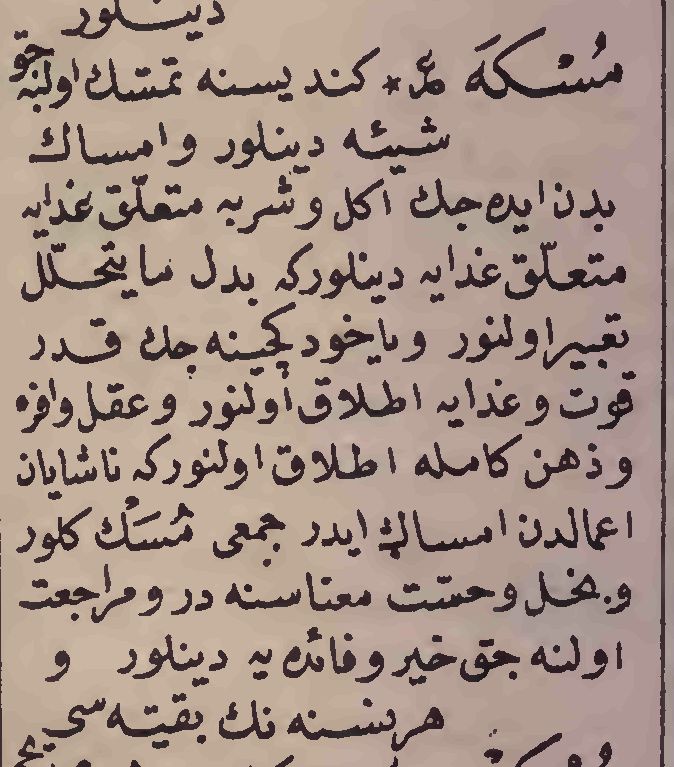 دينلور
مُسْكَه عر * كنديسنه تمسّك اولنه جق
شيئه دينلور وامساك
بدن ايده جك اكل وشربه متعلّق غدايه
متعلّق غدايه دينلوركه بدل ما يتحلّل
تعبير اولنور وياخود كچينه جك قدر
قوت وغدايه اطلاق اولنور وعقل وافره
وذهن كامله اطلاق اولنوركه ناشايان
اعمالدن امساك ايدر جمعى مُسَكْ كلور
وبخل وخسّت معناسنه در ومراجعت
اولنه جق خير وفائده يه دينلور و
هر نسنه نك بقيّه سى